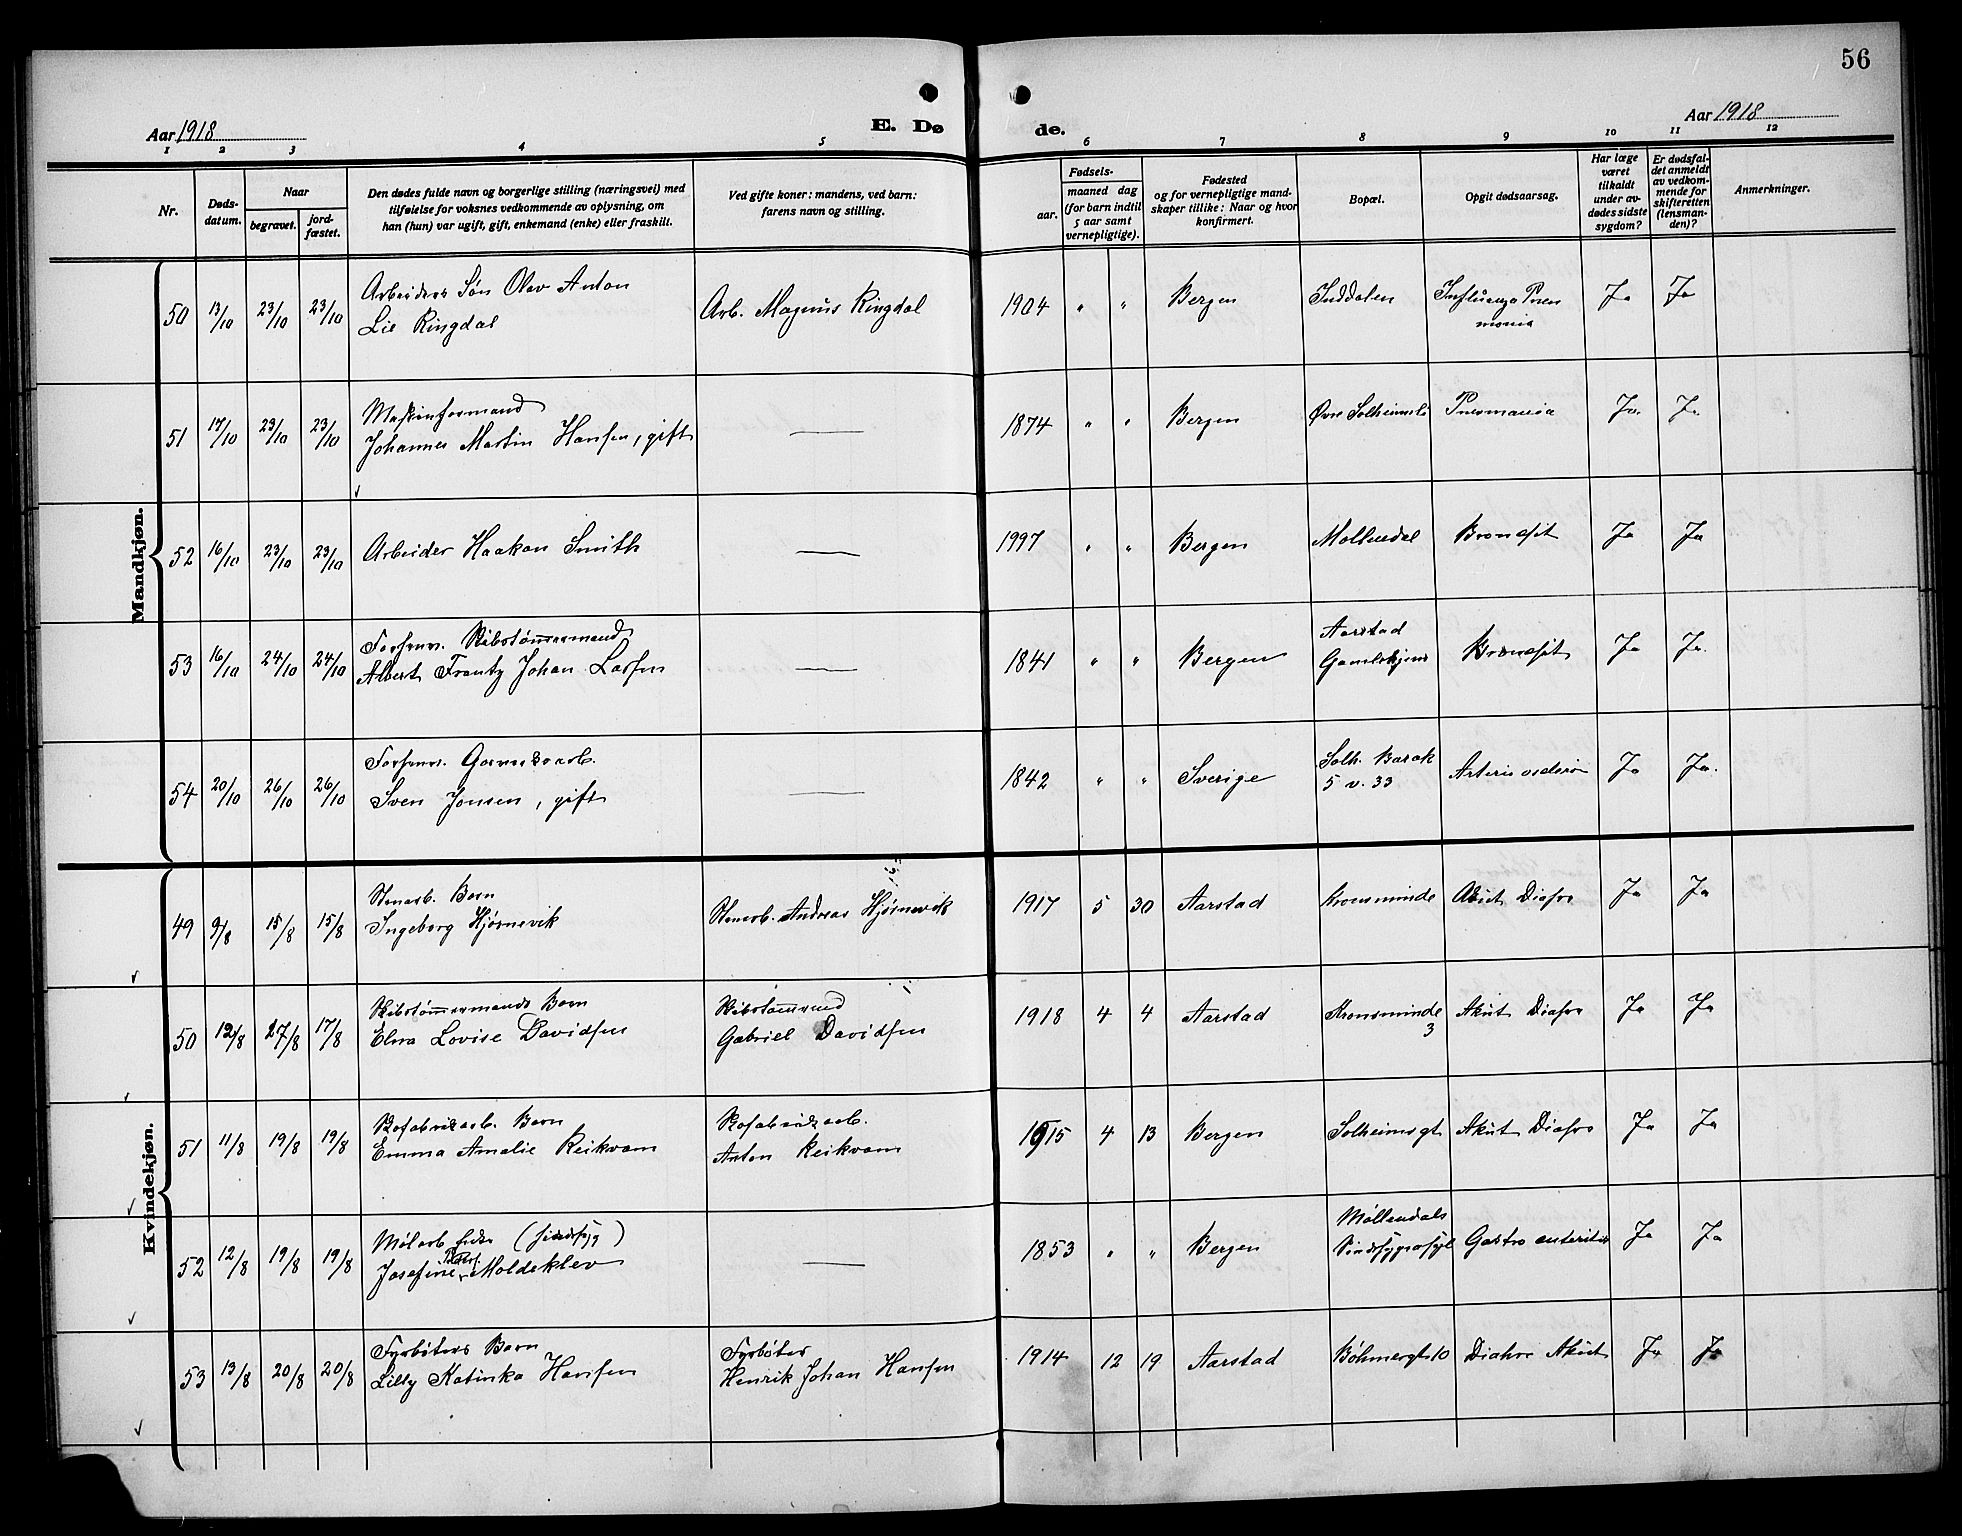 56
Aar 1918
E. Dø
de.
Aar 1918
1 2 3 4 5 6 7 8 9 10 11 12
Nr.
Døds-
datum.
Naar
begravet.
jord-
fæstet.
Den dødes fulde navn og borgerlige stilling (næringsvei) med
tilføielse for voksnes vedkommende av oplysning, om
han (hun) var ugift, gift, enkemand (enke) eller fraskilt.
Ved gifte koner: mandens, ved barn:
farens navn og stilling.
Fødsels-
aar.
maaned dag
(for barn indtil
5 aar samt
vernepligtige).
Fødested
og for vernepligtige mand-
skaper tillike: Naar og hvor
konfirmert.
Bopæl.
Opgit dødsaarsag.
Har læge
været
tilkaldt
under av-
dødes sidste
sygdom?
Er dødsfal-
det anmeldt
av vedkom-
mende for
skifteretten
(lensman-
den)?
Anmerkninger.
Mandkjøn.
50 13/10 23/10 23/10 Arbeiders Søn Olav Anton
Lie Ringdal
Arb. Magnus Ringdal 1904 " " Bergen Inddalen Influenza Pneu
monia
Ja Ja
51 17/10 23/10 23/10 Maskinformand
Johannes Martin Hansen, gift
— 1874 " " Bergen Øvre Solheimsli Pneumonia Ja Ja
52 16/10 23/10 23/10 Arbeider Haakon Smith — 1997 " " Bergen Mollendal Ja Ja
53 16/10 24/10 24/10 Forhenv. Skibstømmermand
Albert Frantz Johan Larsen
— 1841 " " Bergen Aarstad
Gamlehjem
Ja Ja.
54 20/10 26/10 26/10 Forhenv.
Sven Jonsen, gift
— 1842 " " Sverige Solh. Barak
5 v. 33
Ja Ja.
Kvindekjøn.
49 9/8 15/8 15/8 Stenarb. Barn
Ingeborg Hjørnevik
Stenarb. Andreas Hjørnevik 1917 5 30 Aarstad Kronsminde Akut Diafre Ja Ja
50 12/8 27/8 17/8 Skibstømmermands Barn
Elna Lovise Davidsen
Skibstømmermd
Gabriel Davidsen
1918 4 4 Aarstad Kronsminde
3
Akut Diafre Ja Ja
51 11/8 19/8 19/8 Skofabrikarb. Barn
Emma Amalie Reikvam
Skofabrikarb.
Anton Reikvam
1915 4 13 Bergen Solheimsgt Akut Diafre Ja Ja
52 12/8 19/8 19/8 (sindsyg)
Josefine Moldeklev
— 1853 " " Bergen Møllendals
Sindsygeasyl
Gastro enteritis Ja Ja
53 13/8 20/8 20/8 Fyrbøters Barn
Lilly Katinka Hansen
Fyrbøter
Henrik Johan Hansen
1914 12 19 Aarstad Bøhmergt 10 Diahre Akut Ja Ja